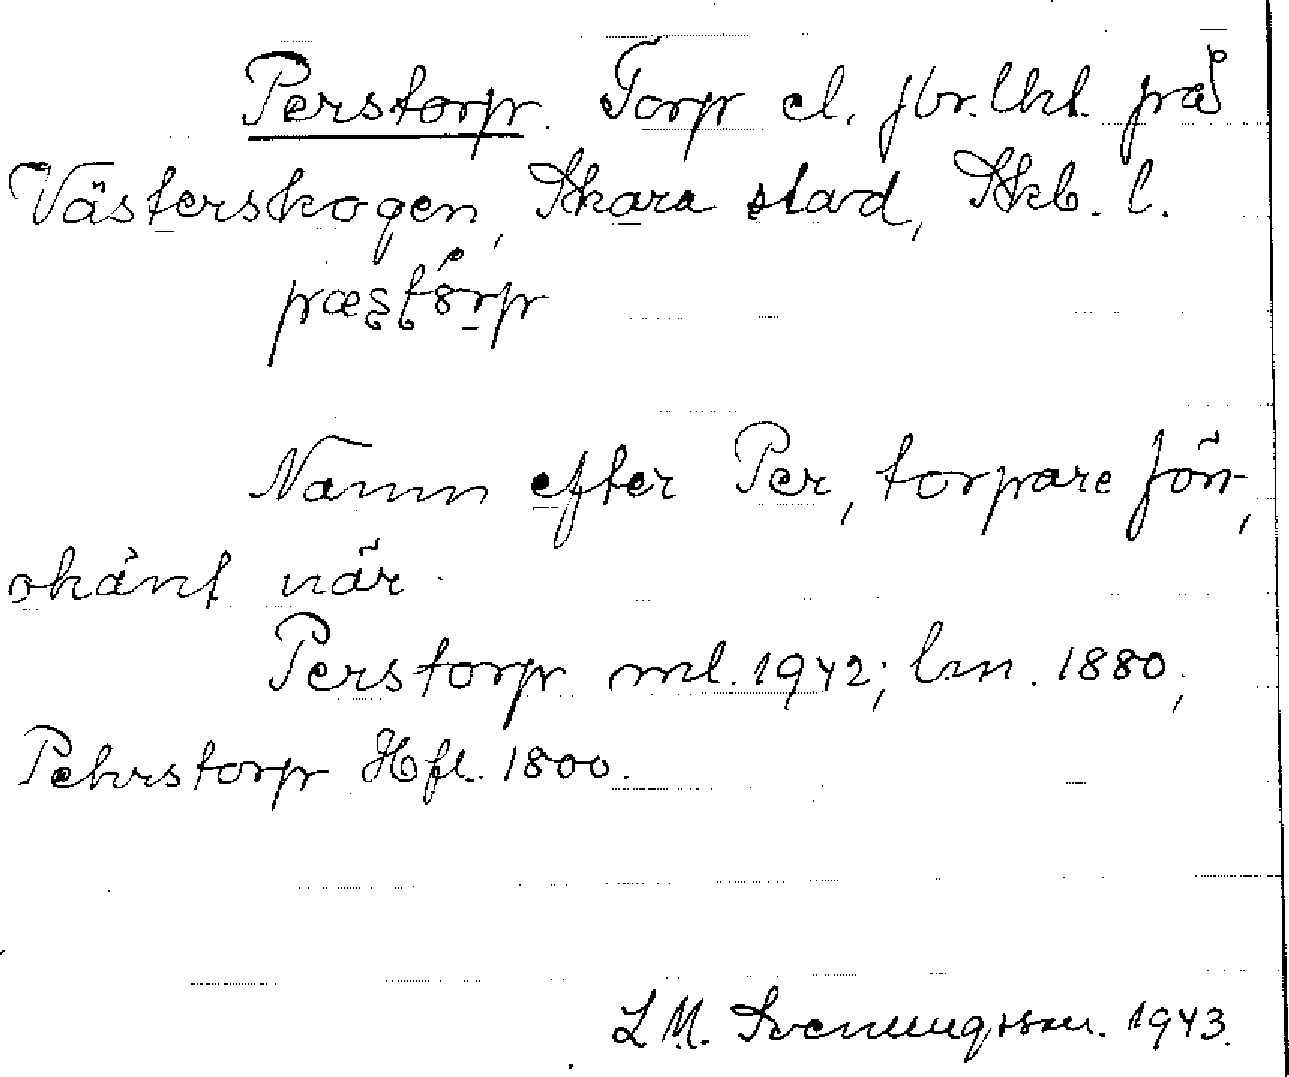 Perstorp. Torp el. jbr.lht. på
Västerskogen, Skara stad, Skb. l.
Namn efter Per, torpare för,
okänt när.
Perstorp ml. 1942; lm. 1880,
Pehrstorp Hfl. 1800.
L M. Svenungsson. 1943.